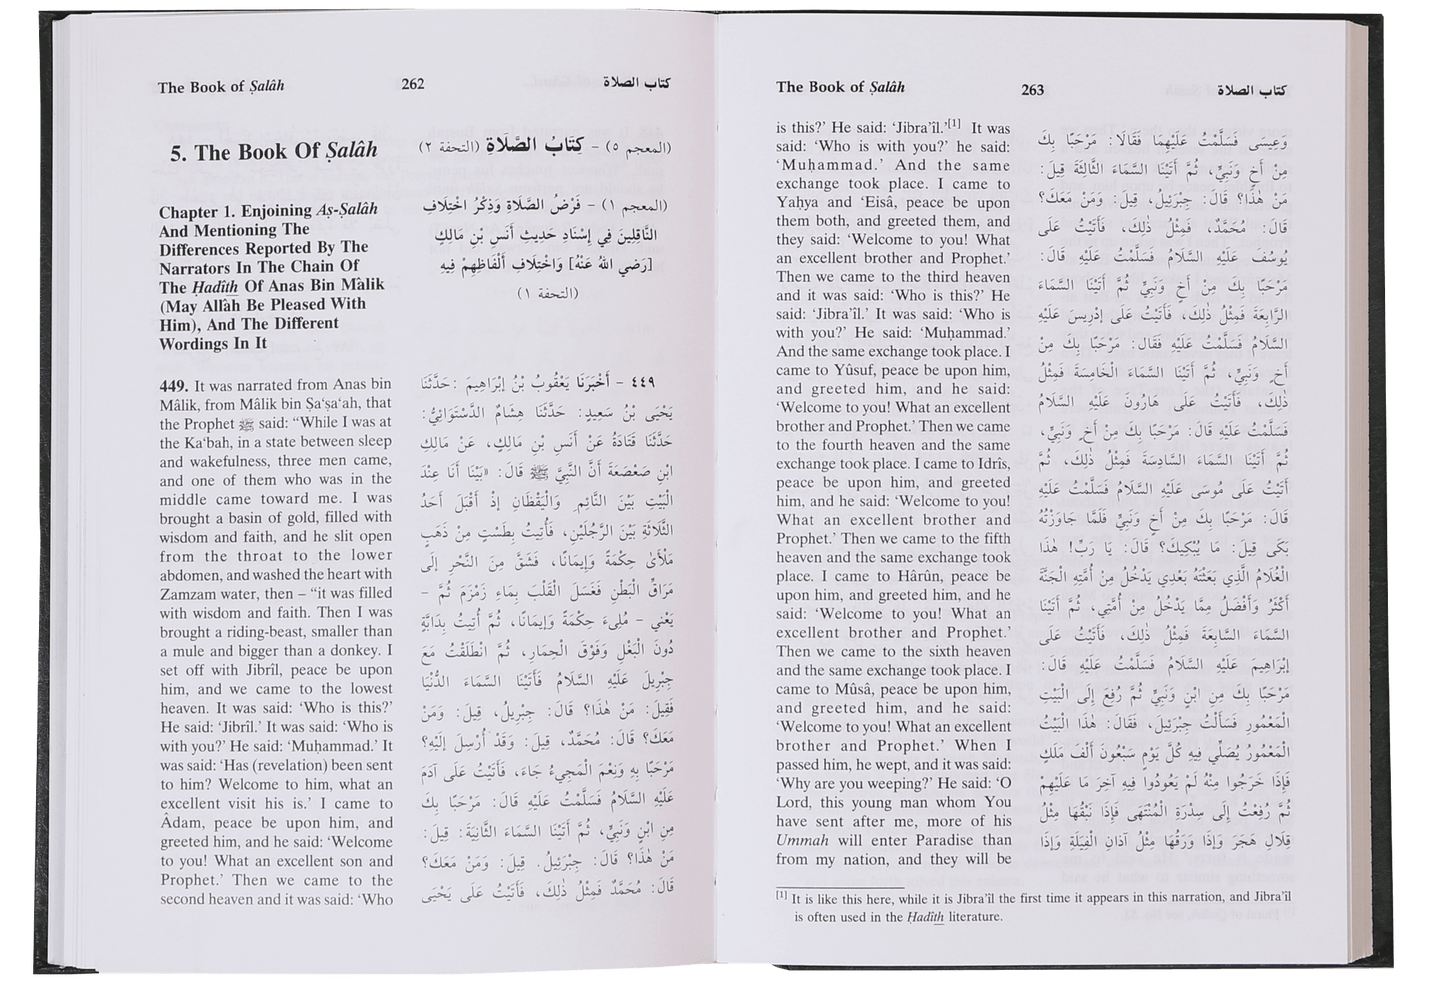 The Book of Ṣalâh 262 كتاب الصلاة
5. The Book Of Ṣalâh
Chapter 1. Enjoining Aṣ-Ṣalâh
And Mentioning The
Differences Reported By The
Narrators In The Chain Of
The Ḥadîth Of Anas Bin Mâlik
(May Allâh Be Pleased With
Him), And The Different
Wordings In It
449. It was narrated from Anas bin
Mâlik, from Mâlik bin Ṣa‘ṣa‘ah, that
the Prophet ﷺ said: “While I was at
the Ka‘bah, in a state between sleep
and wakefulness, three men came,
and one of them who was in the
middle came toward me. I was
brought a basin of gold, filled with
wisdom and faith, and he slit open
from the throat to the lower
abdomen, and washed the heart with
Zamzam water, then – “it was filled
with wisdom and faith. Then I was
brought a riding-beast, smaller than
a mule and bigger than a donkey. I
set off with Jibrîl, peace be upon
him, and we came to the lowest
heaven. It was said: ‘Who is this?’
He said: ‘Jibrîl.’ It was said: ‘Who is
with you?’ He said: ‘Muḥammad.’ It
was said: ‘Has (revelation) been sent
to him? Welcome to him, what an
excellent visit his is.’ I came to
Âdam, peace be upon him, and
greeted him, and he said: ‘Welcome
to you! What an excellent son and
Prophet.’ Then we came to the
second heaven and it was said: ‘Who
(المعجم ٥) – كِتَابُ الصَّلَاةِ (التحفة ٢)
(المعجم ١) – فَرْضُ الصَّلَاةِ وَذِكْرُ اخْتِلَافِ
النَّاقِلِينَ فِي إِسْنَادِ حَدِيثِ أَنَسِ بْنِ مَالِكٍ
[رَضِيَ اللهُ عَنْهُ] وَاخْتِلَافِ أَلْفَاظِهِمْ فِيهِ
(التحفة ١)
٤٤٩ – أَخْبَرَنَا يَعْقُوبُ بْنُ إِبْرَاهِيمَ: حَدَّثَنَا
يَحْيَى بْنُ سَعِيدٍ: حَدَّثَنَا هِشَامٌ الدَّسْتَوَائِيُّ:
حَدَّثَنَا قَتَادَةُ عَنْ أَنَسِ بْنِ مَالِكٍ، عَنْ مَالِكِ
ابْنِ صَعْصَعَةَ أَنَّ النَّبِيَّ ﷺ قَالَ: «بَيْنَا أَنَا عِنْدَ
الْبَيْتِ بَيْنَ النَّائِمِ وَالْيَقْظَانِ إِذْ أَقْبَلَ أَحَدُ
الثَّلَاثَةِ بَيْنَ الرَّجُلَيْنِ، فَأُتِيتُ بِطَسْتٍ مِنْ ذَهَبٍ
مَلْأَىٰ حِكْمَةً وَإِيمَانًا، فَشَقَّ مِنَ النَّحْرِ إِلَى
مَرَاقِّ الْبَطْنِ فَغَسَلَ الْقَلْبَ بِمَاءِ زَمْزَمَ ثُمَّ –
يَعْنِي – مُلِىءَ حِكْمَةً وَإِيمَانًا، ثُمَّ أُتِيتُ بِدَابَّةٍ
دُونَ الْبَغْلِ وَفَوْقَ الْحِمَارِ، ثُمَّ انْطَلَقْتُ مَعَ
جِبْرِيلَ عَلَيْهِ السَّلَامُ فَأَتَيْنَا السَّمَاءَ الدُّنْيَا
فَقِيلَ: مَنْ هٰذَا؟ قَالَ: جِبْرِيلُ، قِيلَ: وَمَنْ
مَعَكَ؟ قَالَ: مُحَمَّدٌ، قِيلَ: وَقَدْ أُرْسِلَ إِلَيْهِ؟
مَرْحَبًا بِهِ وَنِعْمَ الْمَجِيءُ جَاءَ، فَأَتَيْتُ عَلَى آدَمَ
عَلَيْهِ السَّلَامُ فَسَلَّمْتُ عَلَيْهِ قَالَ: مَرْحَبًا بِكَ
مِنِ ابْنٍ وَنَبِيٍّ، ثُمَّ أَتَيْنَا السَّمَاءَ الثَّانِيَةَ: قِيلَ:
مَنْ هٰذَا؟ قَالَ: جِبْرَئِيلُ. قِيلَ: وَمَنْ مَعَكَ؟
قَالَ: مُحَمَّدٌ فَمِثْلُ ذٰلِكَ، فَأَتَيْتُ عَلَى يَحْيَى
The Book of Ṣalâh 263 كتاب الصلاة
is this?’ He said: ‘Jibra’îl.’[1] It was
said: ‘Who is with you?’ he said:
‘Muḥammad.’ And the same
exchange took place. I came to
Yaḥya and ‘Eisâ, peace be upon
them both, and greeted them, and
they said: ‘Welcome to you! What
an excellent brother and Prophet.’
Then we came to the third heaven
and it was said: ‘Who is this?’ He
said: ‘Jibra’îl.’ It was said: ‘Who is
with you?’ He said: ‘Muḥammad.’
And the same exchange took place. I
came to Yûsuf, peace be upon him,
and greeted him, and he said:
‘Welcome to you! What an excellent
brother and Prophet.’ Then we came
to the fourth heaven and the same
exchange took place. I came to Idris,
peace be upon him, and greeted
him, and he said: ‘Welcome to you!
What an excellent brother and
Prophet.’ Then we came to the fifth
heaven and the same exchange took
place. I came to Hârûn, peace be
upon him, and greeted him, and he
said: ‘Welcome to you! What an
excellent brother and Prophet.’
Then we came to the sixth heaven
and the same exchange took place. I
came to Mûsâ, peace be upon him,
and greeted him, and he said:
‘Welcome to you! What an excellent
brother and Prophet.’ When I
passed him, he wept, and it was said:
‘Why are you weeping?’ He said: ‘O
Lord, this young man whom You
have sent after me, more of his
Ummah will enter Paradise than
from my nation, and they will be
وَعِيسَى فَسَلَّمْتُ عَلَيْهِمَا فَقَالَا: مَرْحَبًا بِكَ
مِنْ أَخٍ وَنَبِيٍّ، ثُمَّ أَتَيْنَا السَّمَاءَ الثَّالِثَةَ قِيلَ:
مَنْ هٰذَا؟ قَالَ: جِبْرَئِيلُ، قِيلَ: وَمَنْ مَعَكَ؟
قَالَ: مُحَمَّدٌ، فَمِثْلُ ذٰلِكَ، فَأَتَيْتُ عَلَى
يُوسُفَ عَلَيْهِ السَّلَامُ فَسَلَّمْتُ عَلَيْهِ قَالَ:
مَرْحَبًا بِكَ مِنْ أَخٍ وَنَبِيٍّ ثُمَّ أَتَيْنَا السَّمَاءَ
الرَّابِعَةَ فَمِثْلُ ذٰلِكَ، فَأَتَيْتُ عَلَى إِدْرِيسَ عَلَيْهِ
السَّلَامُ فَسَلَّمْتُ عَلَيْهِ فَقَالَ: مَرْحَبًا بِكَ مِنْ
أَخٍ وَنَبِيٍّ، ثُمَّ أَتَيْنَا السَّمَاءَ الْخَامِسَةَ فَمِثْلُ
ذٰلِكَ، فَأَتَيْتُ عَلَى هَارُونَ عَلَيْهِ السَّلَامُ
فَسَلَّمْتُ عَلَيْهِ قَالَ: مَرْحَبًا بِكَ مِنْ أَخٍ وَنَبِيٍّ،
ثُمَّ أَتَيْنَا السَّمَاءَ السَّادِسَةَ فَمِثْلُ ذٰلِكَ، ثُمَّ
أَتَيْتُ عَلَى مُوسَى عَلَيْهِ السَّلَامُ فَسَلَّمْتُ عَلَيْهِ
قَالَ: مَرْحَبًا بِكَ مِنْ أَخٍ وَنَبِيٍّ فَلَمَّا جَاوَزْتُهُ
بَكَى قِيلَ: مَا يُبْكِيكَ؟ قَالَ: يَا رَبِّ! هٰذَا
الْغُلَامُ الَّذِي بَعَثْتَهُ بَعْدِي يَدْخُلُ مِنْ أُمَّتِهِ الْجَنَّةَ
أَكْثَرُ وَأَفْضَلُ مِمَّا يَدْخُلُ مِنْ أُمَّتِي، ثُمَّ أَتَيْنَا
السَّمَاءَ السَّابِعَةَ فَمِثْلُ ذٰلِكَ، فَأَتَيْتُ عَلَى
إِبْرَاهِيمَ عَلَيْهِ السَّلَامُ فَسَلَّمْتُ عَلَيْهِ قَالَ:
مَرْحَبًا بِكَ مِنِ ابْنٍ وَنَبِيٍّ ثُمَّ رُفِعَ إِلَى الْبَيْتِ
الْمَعْمُورِ فَسَأَلْتُ جِبْرَئِيلَ، فَقَالَ: هٰذَا الْبَيْتُ
الْمَعْمُورُ يُصَلِّي فِيهِ كُلَّ يَوْمٍ سَبْعُونَ أَلْفَ مَلَكٍ
فَإِذَا خَرَجُوا مِنْهُ لَمْ يَعُودُوا فِيهِ آخِرَ مَا عَلَيْهِمْ
ثُمَّ رُفِعْتُ إِلَى سِدْرَةِ الْمُنْتَهَى فَإِذَا نَبْقُهَا مِثْلُ
قِلَالِ هَجَرَ وَإِذَا وَرَقُهَا مِثْلُ آذَانِ الْفِيَلَةِ وَإِذَا
[1] It is like this here, while it is Jibra’îl the first time it appears in this narration, and Jibra’îl
is often used in the Ḥadîth literature.